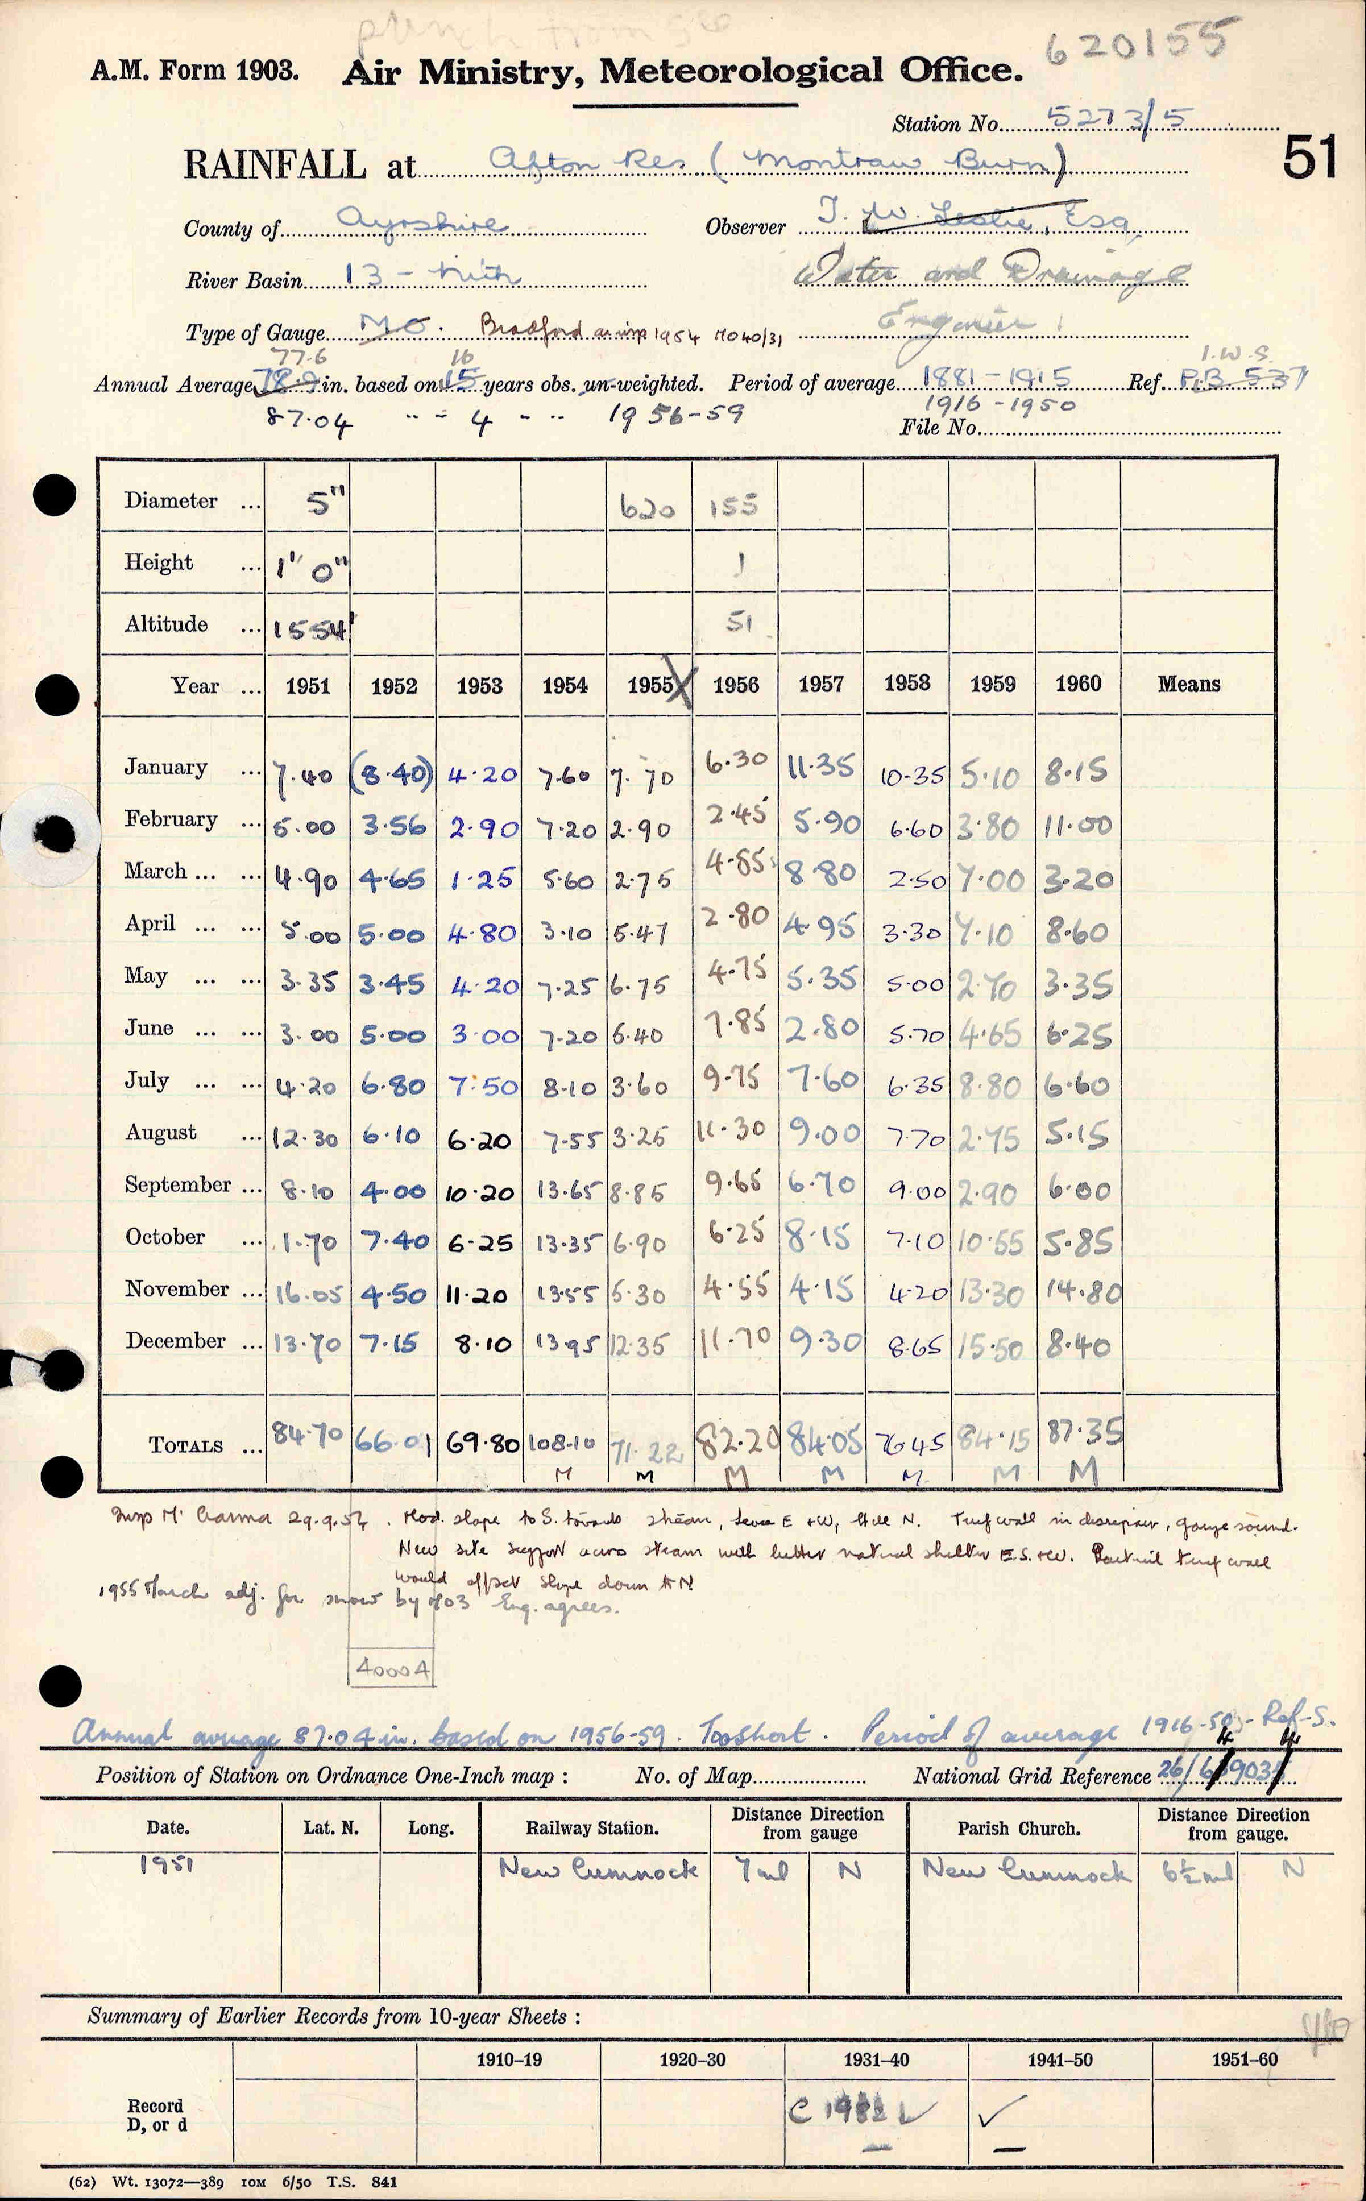 punch from 560
620155
A.M. Form 1903. Air Ministry, Meteorological Office.
Station No. 5273/5
51
RAINFALL at Afton Res (Montraw Burn)
County of Ayrshire Observer T. W. Leslie, Esq,
River Basin 13 - Nith Water and Drainage
Type of Gauge MO. Bradford 1954 MO40/31 Engineer
77.6 16 I.W.S.
Annual Average 78.9 in. based on 15 years obs. un-weighted. Period of average 1881-1915 Ref. P.B 537
87.04 " - 4 - " 1956-59 1916-1950
File No.
Diameter ... 5" 620 155
Height ... 1" 0" 1
Altitude ... 1554' 51
Year ... 1951 1952 1953 1954 1955 X 1956 1957 1958 1959 1960 Means
January ... 7.40 (8.40) 4.20 7.60 7.70 6.30 11.35 10.35 5.10 8.15
February ... 5.00 3.56 2.90 7.20 2.90 2.45 5.90 6.60 3.80 11.00
March ... ... 4.90 4.65 1.25 5.60 2.75 4.85 8.80 2.50 7.00 3.20
April ... ... 5.00 5.00 4.80 3.10 5.47 2.80 4.95 3.30 7.10 8.60
May ... ... 3.35 3.45 4.20 7.25 6.75 4.75 5.35 5.00 2.70 3.35
June ... ... 3.00 5.00 3.00 7.20 5.40 7.85 2.80 5.70 4.65 6.25
July ... ... 4.20 6.80 7.50 8.10 3.60 9.75 7.60 6.35 8.80 6.60
August ... 12.30 6.10 6.20 7.55 3.25 11.30 9.00 7.70 2.75 5.15
September ... 8.10 4.00 10.20 13.65 8.85 9.65 6.70 9.00 2.90 6.00
October ... 1.70 7.40 6.25 13.35 6.90 6.25 8.15 7.10 10.55 5.85
November ... 16.05 4.50 11.20 13.55 5.30 4.55 4.15 4.20 13.30 14.80
December ... 13.70 7.15 8.10 13.95 12.35 11.70 9.30 8.65 15.50 8.40
TOTALS ... 84.70 66.01 69.80 108.10 71.22 82.20 84.05 76.45 84.15 87.35
M M M M M M M
Insp 29.9.54. Mod. slope to S. towards stream, level E & W, Hill N. Turf wall in disrepair, gauge sound.
New site across stream with better natural shelter E.S. & W. turf wall
would offset slope down N
1955 March adj. for snow by M03 Eng. agrees.
4000A
Annual average 87.04 in. based on 1956-59. Too short. Period of average 1916-50 - Ref-S.
4 4
Position of Station on Ordnance One-Inch map : No. of Map National Grid Reference 26/6 903
Date. Lat. N. Long. Railway Station. Distance Direction from gauge Parish Church. Distance Direction from gauge.
1951 New Cumnock 7 ml N New Cumnock 6½ ml N
Summary of Earlier Records from 10-year Sheets :
1910-19 1920-30 1931-40 1941-50 1951-60
Record
D, or d
C 1932 ✓ ✓
(62) Wt. 13072—389 10M 6/50 T.S. 841